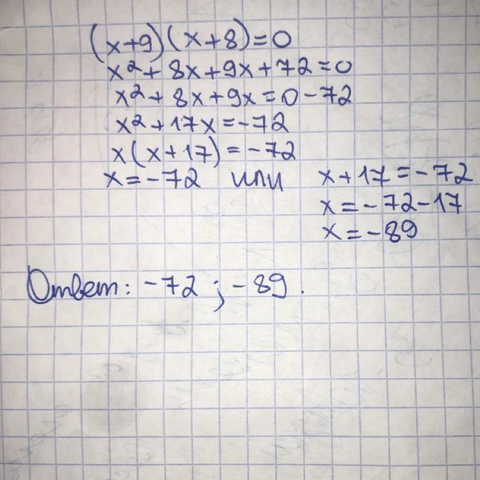 (x+9)(x+8)=0
x²+8x+9x+72=0
x²+8x+9x=0-72
x²+17x=-72
x(x+17)=-72
x=-72 или x+17=-72
x=-72-17
x=-89
Ответ: -72; -89.